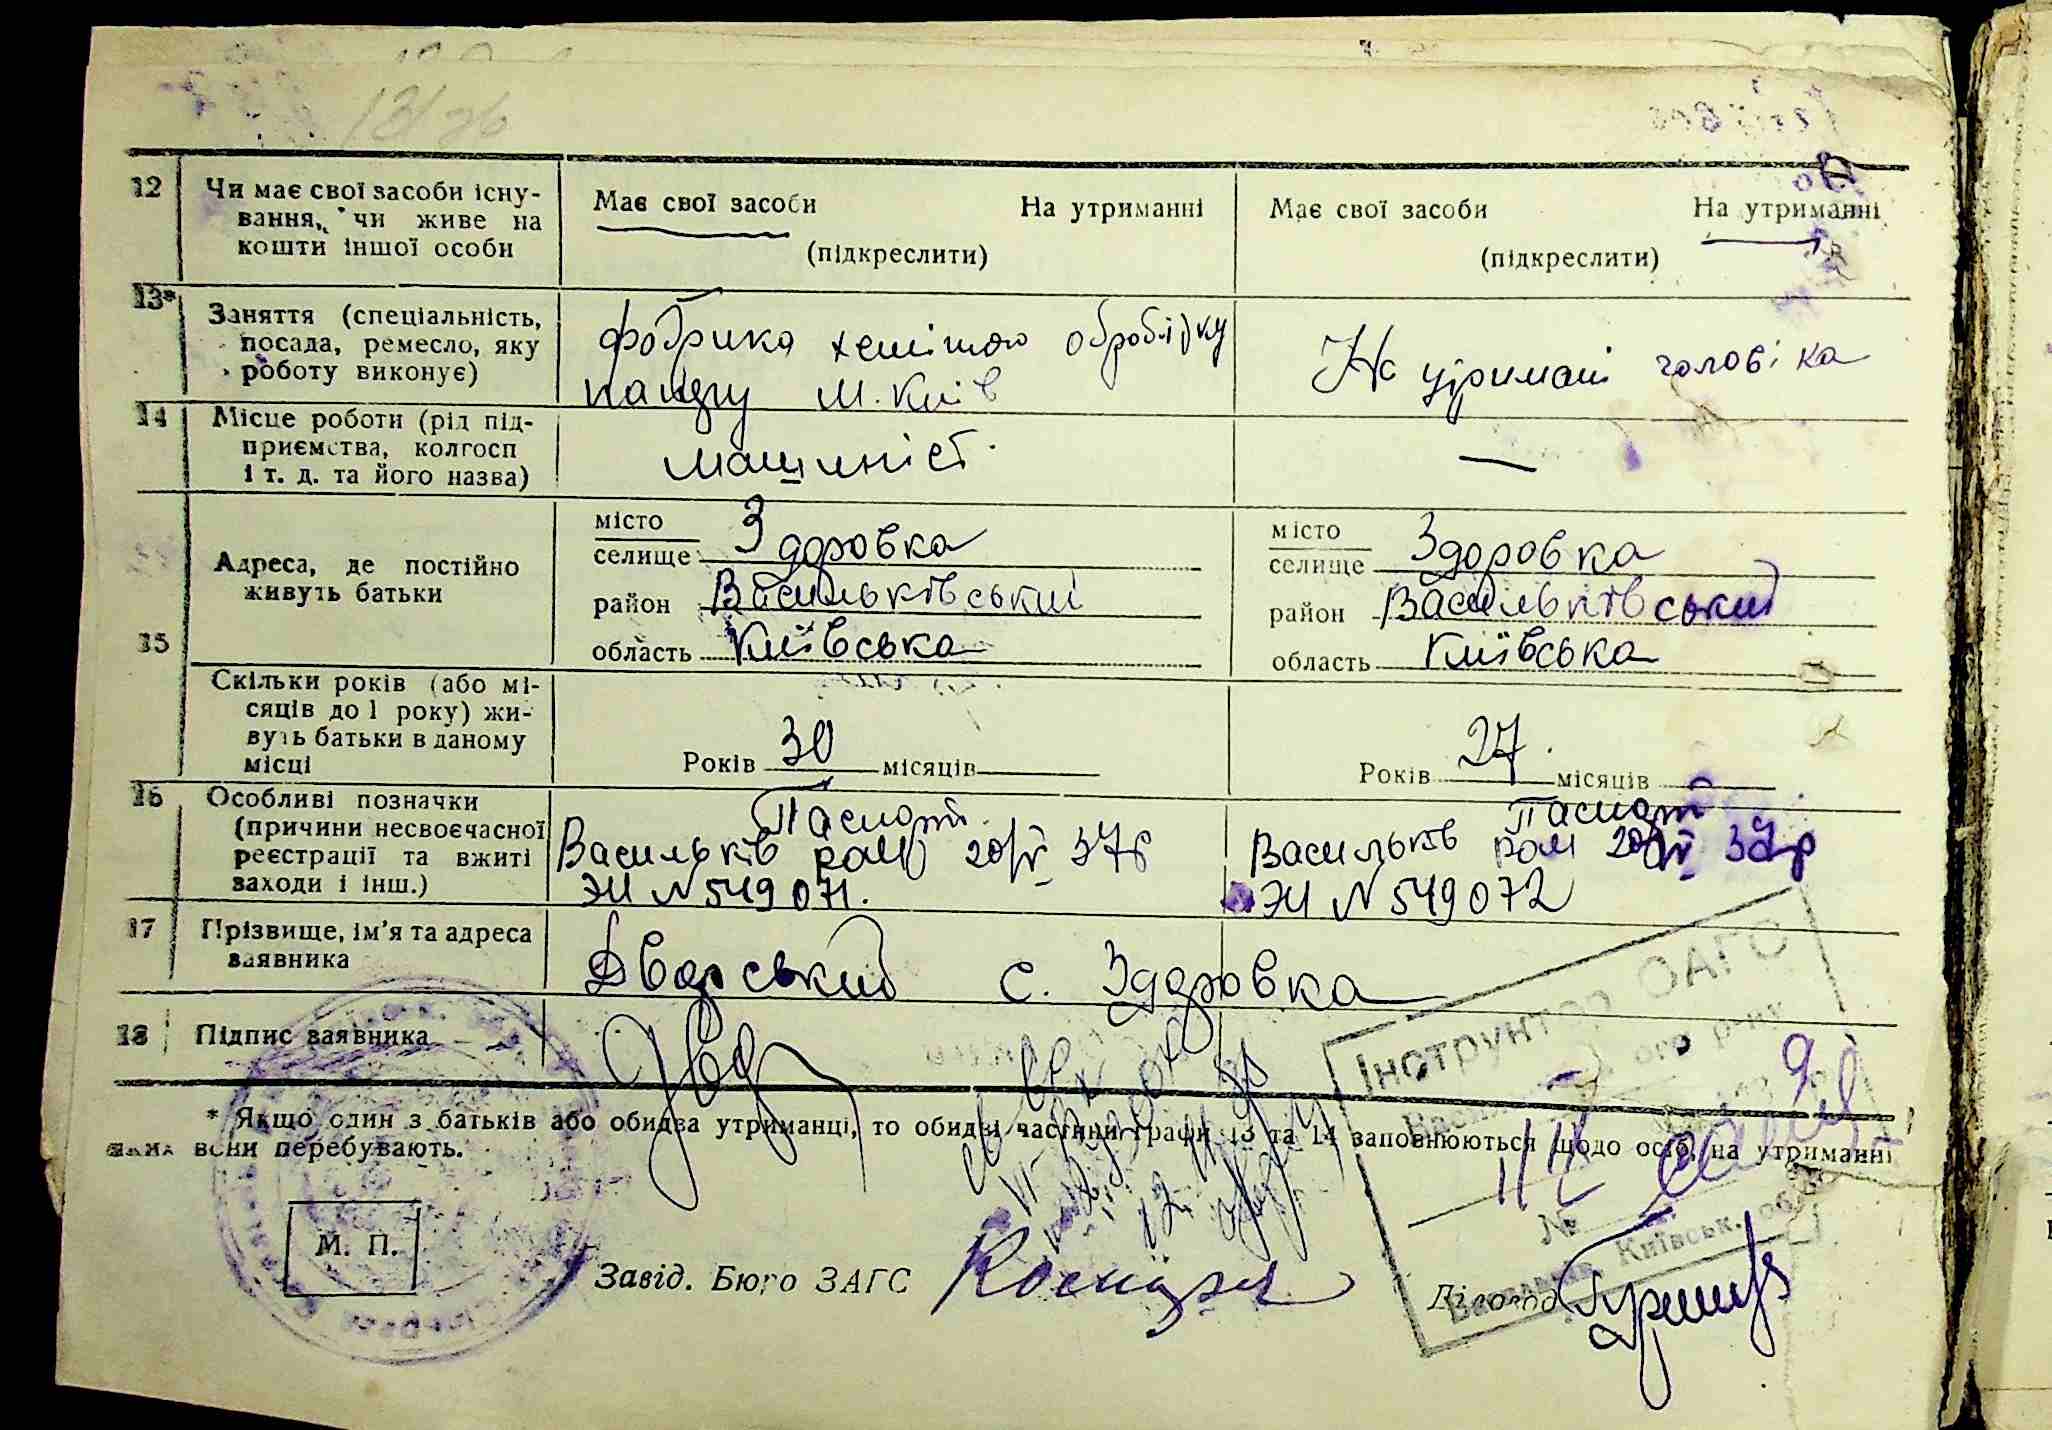 13/26
12 Чи має свої засоби існу-
вання, чи живе на
кошти іншої особи
Має свої засоби На утриманні
(підкреслити)
Має свої засоби На утриманні
(підкреслити)
13* Заняття (спеціальність,
посада, ремесло, яку
роботу виконує)
фабрика хемічною обробліку
паперу м. Київ
На утримані чоловіка
14 Місце роботи (рід під-
приємства, колгосп
і т. д. та його назва)
машиніст.
—
15 Адреса, де постійно
живуть батьки
місто
селище Здоровка
район Васильківський
область Київська
місто
селище Здоровка
район Васильківський
область Київська
Скільки років (або мі-
сяців до 1 року) жи-
вуть батьки в даному
місці
Років 30 місяців
Років 27 місяців
16 Особливі позначки
(причини несвоєчасної
реєстрації та вжиті
заходи і інш.)
Паспорт
Васильків 37р
ЭИ N 549071.
Паспорт
Васильків 37р
ЭИ N 549072
17 Прізвище, ім'я та адреса
заявника
Дворський с. Здоровка
18 Підпис заявника
* Якщо один з батьків або обидва утриманці, то обидві частини графи 13 та 14 заповнюються щодо осіб, на утриманні
яких вони перебувають.
М. П.
Завід. Бюро ЗАГС
Діловод
Інструктор ОАГС
№
Київськ. обл.